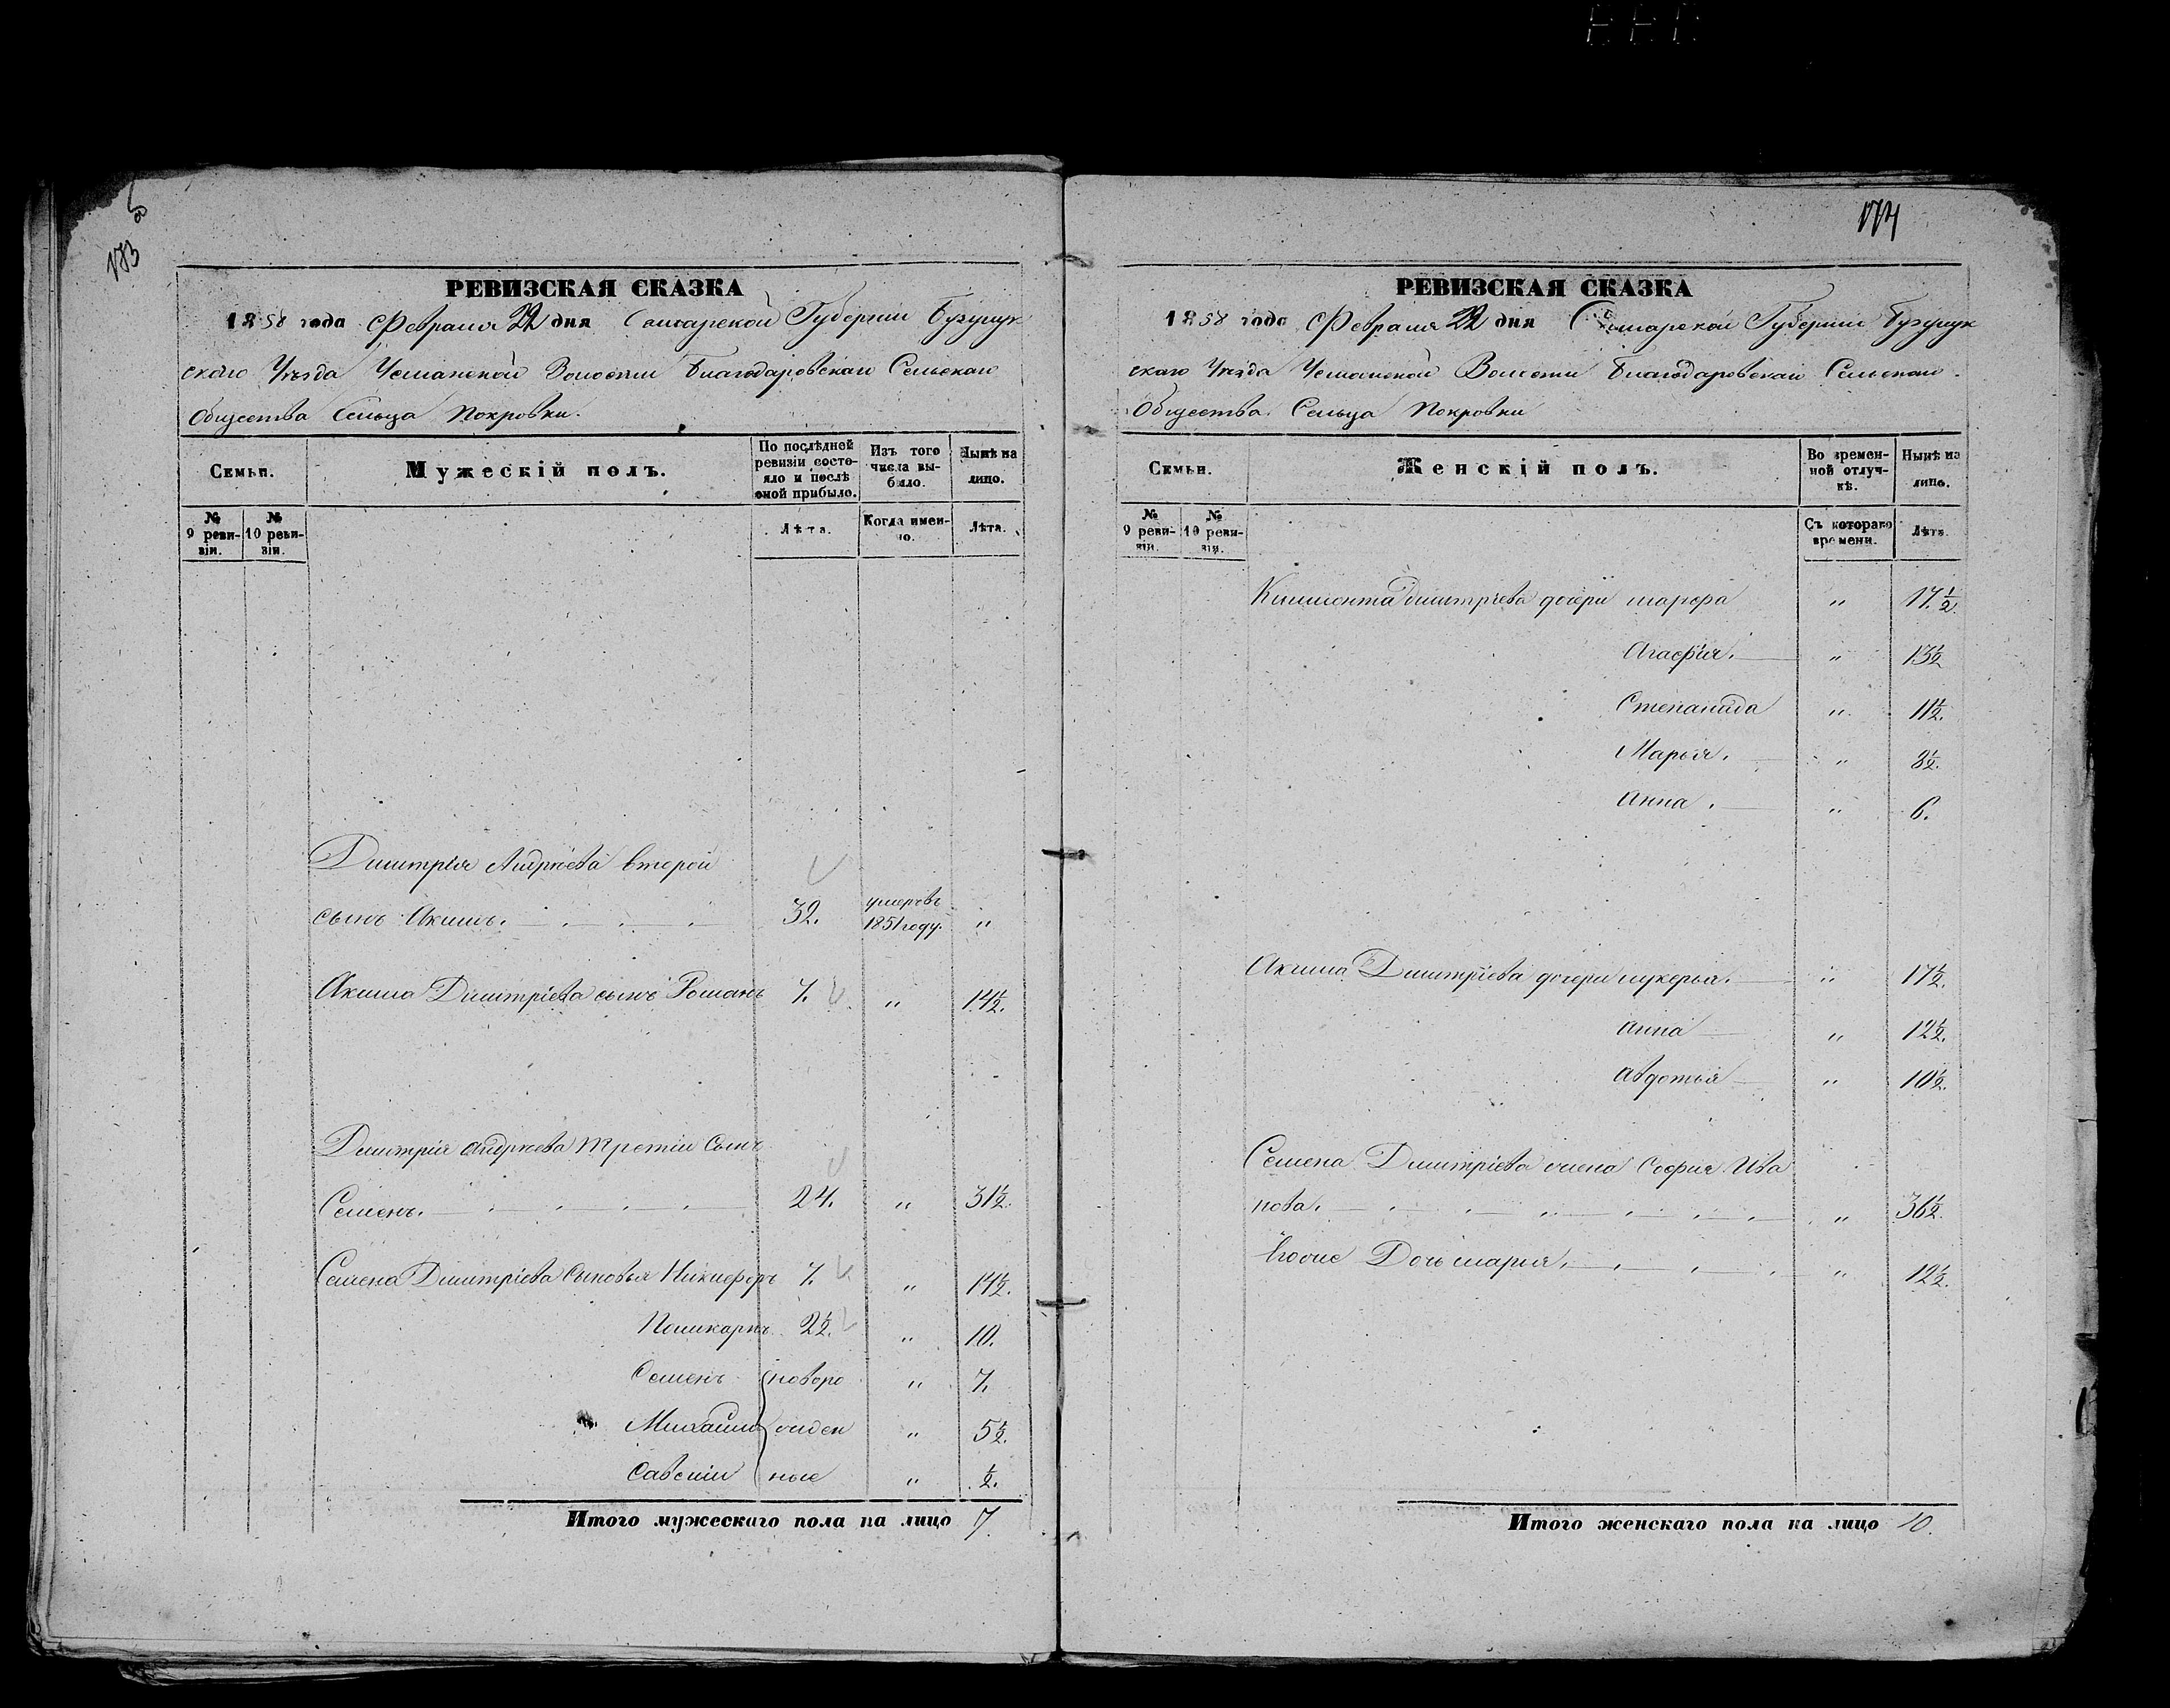 173
РЕВИЗСКАЯ СКАЗКА
1858 года Февраля 22 дня Самарской Губернии Бузулук
скаго Уѣзда Волости Благодаровскаго Сельскаго
Общества Сельца Покровки.
Семьи.
Мужескій полъ.
По послѣдней
ревизіи состо-
яло и послѣ
оной прибыло.
Изъ того
числа вы-
было.
Нынѣ на
лицо.
№
9 реви-
зіи.
№
10 реви-
зіи.
Лѣта.
Когда имен-
но.
Лѣта.
Дмитрія Андрѣева второй
сынъ Акимъ. 32. умеръ въ 1851 году. "
Акима Дмитріева сынъ Романъ 7. " 14½.
Дмитрія Андрѣева третій сынъ
Семенъ. 24. " 31½.
Семена Дмитріева сыновья Никифоръ 7. " 14½.
Поликарпъ 2½. " 10.
Семенъ новоро " 7.
Михаилъ жден " 5½.
Савелій ные " ½.
Итого мужескаго пола на лицо 7.
174
РЕВИЗСКАЯ СКАЗКА
1858 года Февраля 22 дня Самарской Губернии Бузулук
скаго Уѣзда Волости Благодаровскаго Сельскаго
Общества Сельца Покровки
Семьи.
Женскій полъ.
Во времен-
ной отлуч-
кѣ.
Нынѣ на
лицо.
№
9 реви-
зіи.
№
10 реви-
зіи.
Съ котораго
времени.
Лѣта.
Климонта Дмитріева дочери Марфа " 17½.
Агафія. " 13½
Степанида " 11½.
Марья. " 8½.
Анна. " 6.
Акима Дмитріева дочери Лукерья. " 17½.
Анна " 12½.
Авдотья " 10½.
Семена Дмитріева жена Софія Ива
нова. " 36½.
Егоже Дочь Марья. " 12½.
Итого женскаго пола на лицо 10.